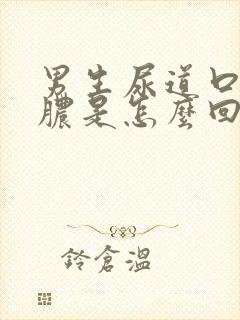 男生尿道口
膿是怎麼回
鈴倉溫